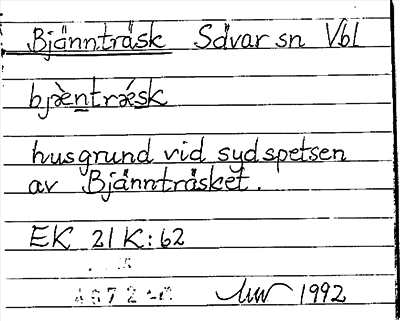 Bjännträsk Sävar sn Vbl
bjὲntrǽsk
husgrund vid sydspetsen
av Bjännträsket.
EK 21K:62
1992